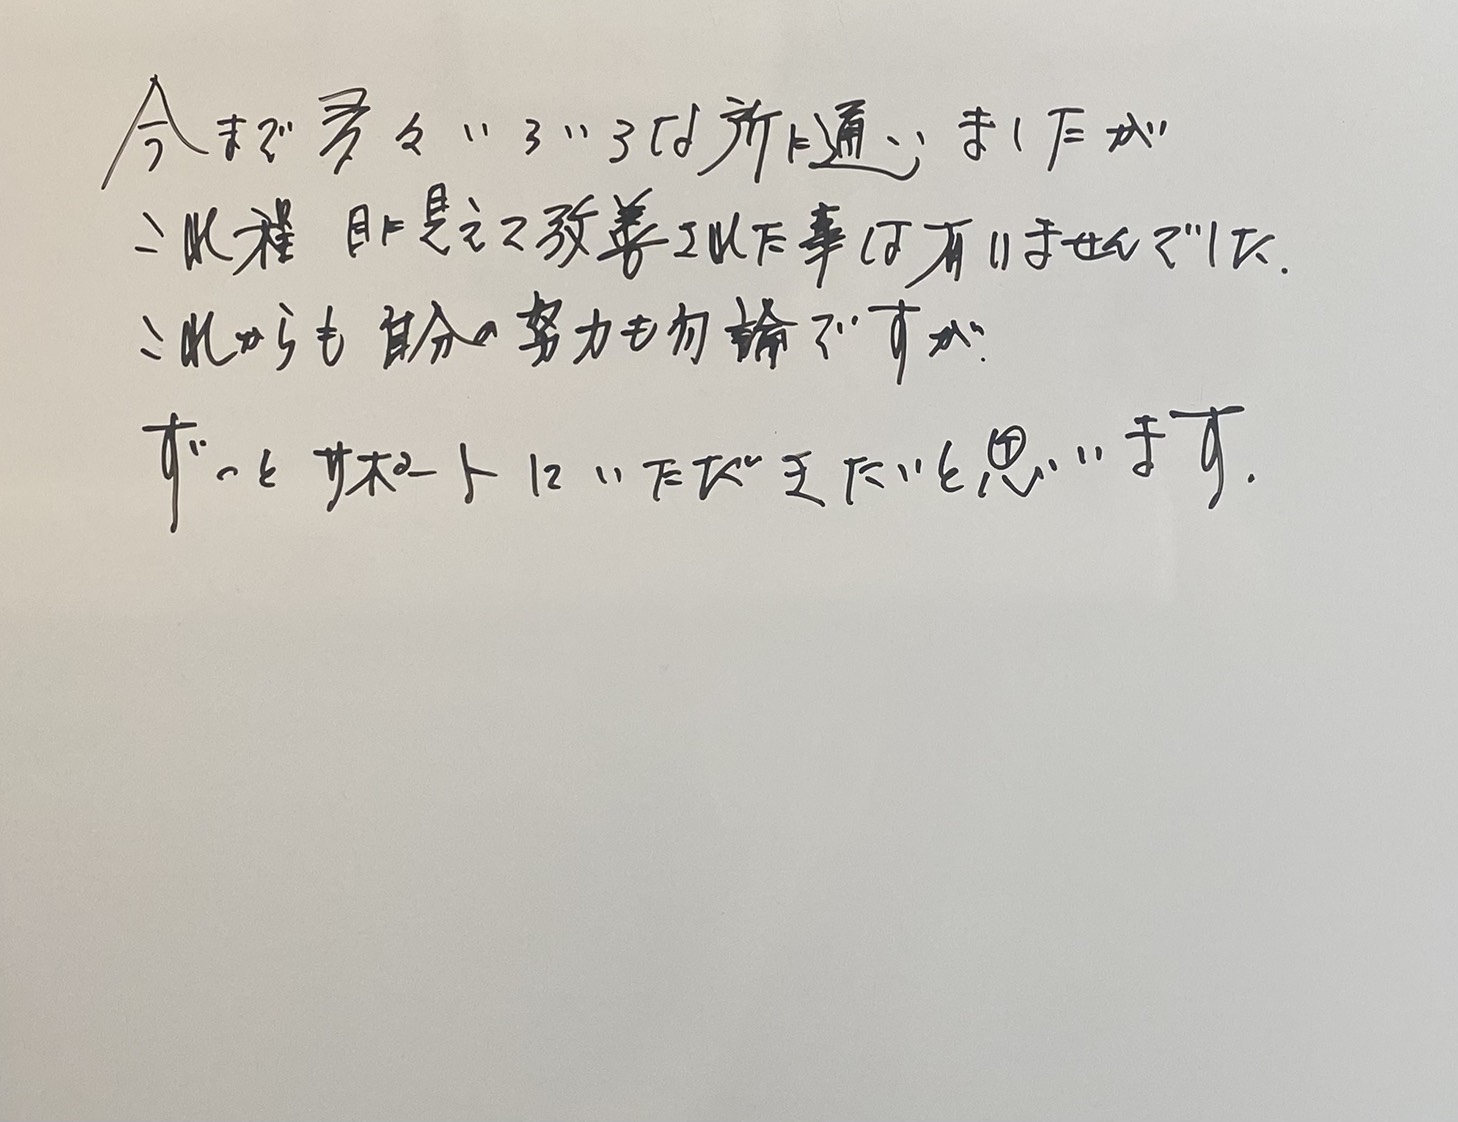 今まで多々いろいろな所に通いましたが
これ程 目に見えて改善された事は有りませんでした.
これからも 自分の努力も勿論ですが.
ずっと サポートにいただきたいと思います.